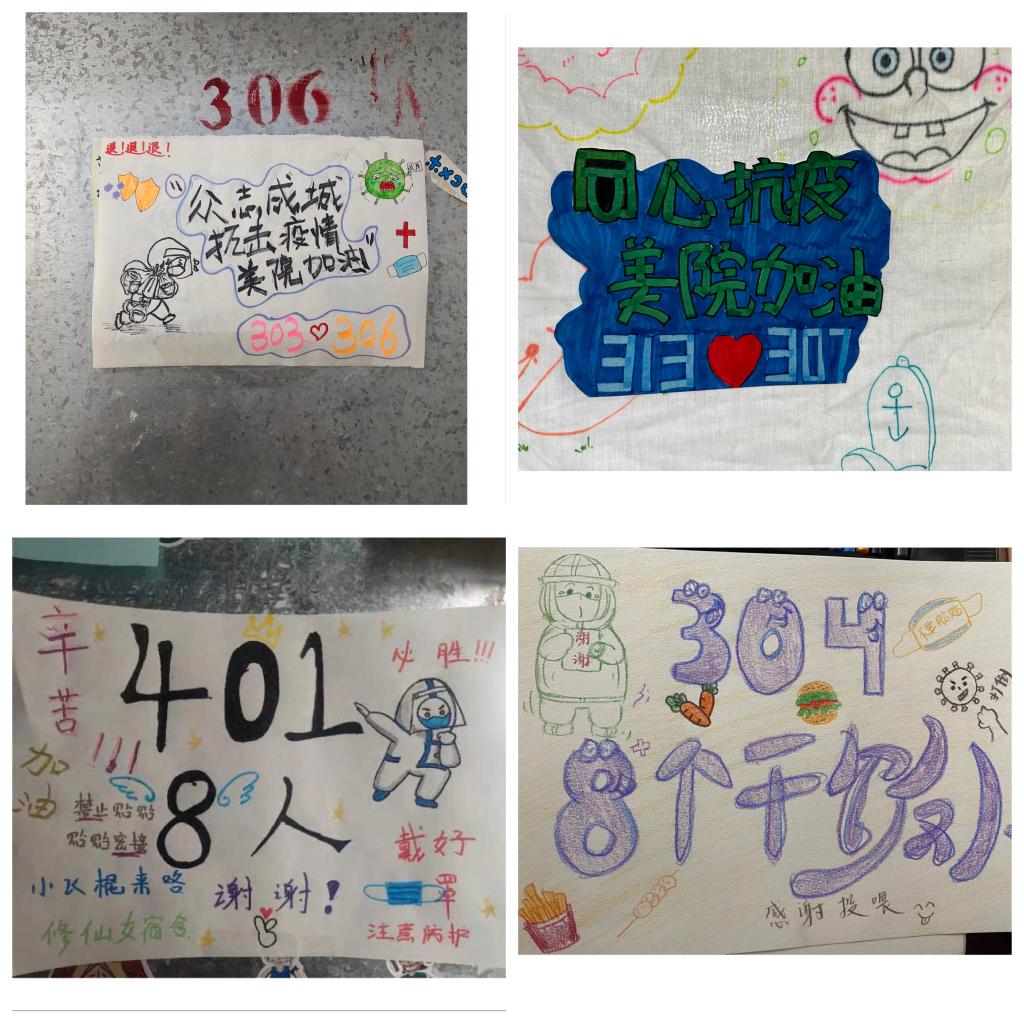 306
退!退!退!
"众志成城
抗击疫情
美院加油"
303 306
同心抗疫
美院加油
313 307
辛苦
401
必胜!!!
加油!!!
8人
禁止贴贴
贴贴密接
戴好
罩
小飞棍来咯
谢谢!
修仙女宿舍
注意防护
304
谢谢
打倒
8个干饭人
感谢投喂